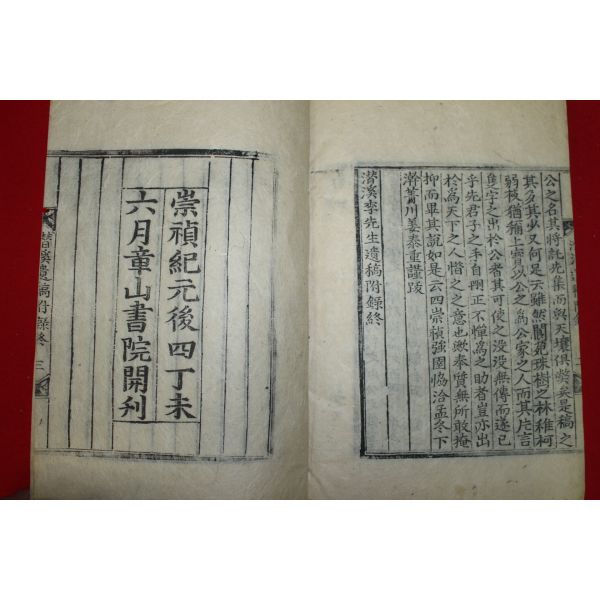 公之名其將託先集而與天壤俱弊矣是稿之
其多其少又何足云雖然閬苑珠樹之林稚柯
弱枝猶稱上寶以公之爲公家之人而其片言
隻字之出於公者其可使之沒沒無傳而遂已
乎先君子之手自删正不憚爲之助者豈亦出
於爲天下之人惜之之意也歟奉賁無所敢掩
抑而畢其說如是云四崇禎強圉協洽孟冬下
澣黃川姜泰重謹跋
潛溪李先生遺稿附錄終
崇禎紀元後四丁未
六月章山書院開刋
潛溪遺稿附錄終 三